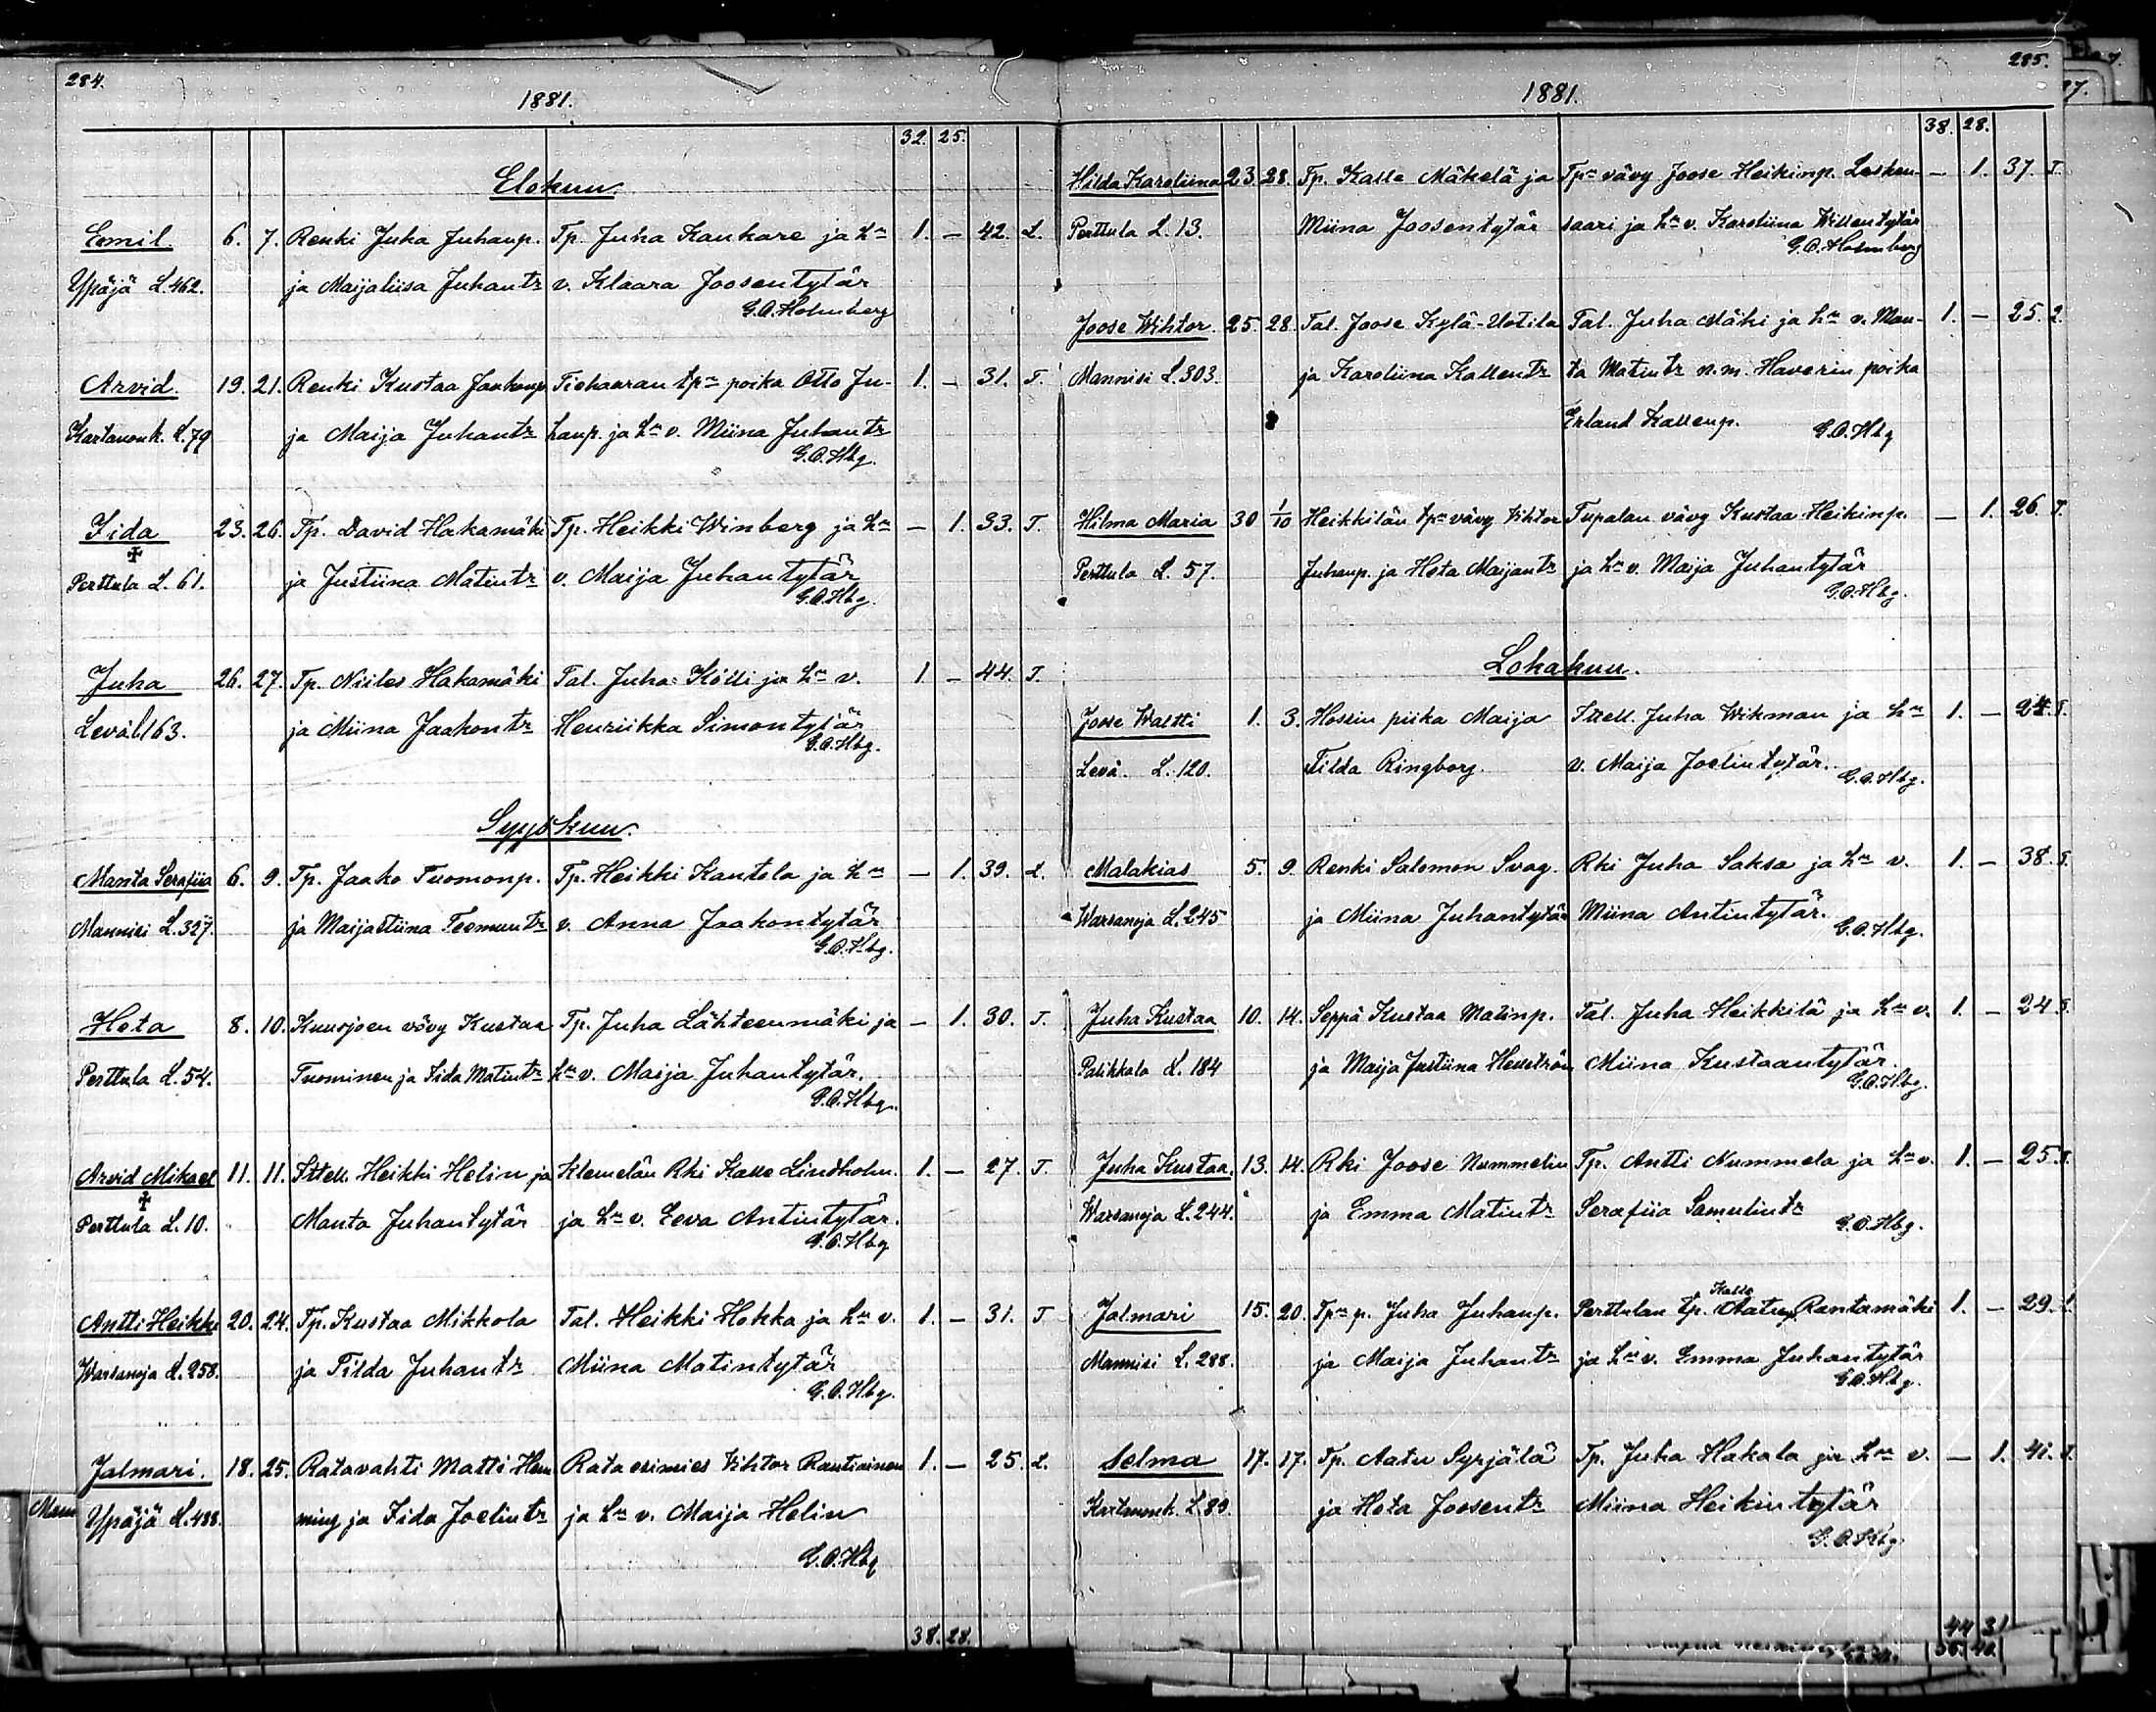 284.
1881.
32. 25.
Elokuu.
Emil. 6. 7. Renki Juha Juhanp. Tp. Juha Kankare ja hn 1. — 42. L.
Ypäjä L. 462. ja Maijaliisa Juhantr v. Klaara Joosentytär
G.A. Holmberg
Arvid. 19. 21. Renki Kustaa Jaakonp Tiehaaran tpn poika Otto Ju- 1. — 31. T.
Kartanonk. L. 79 ja Maija Juhantr hanp. ja hn v. Miina Juhantr
G.A. Hbg.
Iida 23. 26. Tp. David Hakamäki Tp. Heikki Winberg ja hn — 1. 33. T.
Perttula L. 61. ja Justiina Matintr v. Maija Juhantytär
G.A. Hbg.
Juha 26. 27. Tp. Niiles Hakamäki Tal. Juha Kölli ja hn v. 1 — 44. T.
Levä L 163. ja Miina Jaakontr Henriikka Simontytär
G.A. Hbg.
Syyskuu.
Manta Serafiia 6. 9. Tp. Jaako Tuomonp. Tp. Heikki Kantola ja hn — 1. 39. L.
Mannisi L. 327. ja Maijastiina Teemuntr v. Anna Jaakontytär
G.A. Hbg.
Heta 8. 10. Kuusjoen vävy Kustaa Tp. Juha Lähteenmäki ja — 1. 30. T.
Perttula L. 54. Tuominen ja Iida Matintr hn v. Maija Juhantytär.
G.A. Hbg.
Arvid Mikael 11. 11. Ittell. Heikki Helin ja Klemelän Rki Kalle Lindholm. 1. — 27. T.
Perttula L. 10. Manta Juhantytär ja hn v. Eeva Antintytär.
G.A. Hbg
Antti Heikki 20. 24. Tp. Kustaa Mikkola Tal. Heikki Hokka ja hn v. 1. — 31. T
Warsanoja L. 258. ja Tilda Juhantr Miina Matintytär
G.A. Hbg.
Jalmari. 18. 25. Ratavahti Matti Hem Rataesimies Vihtor Rautiainen 1. — 25. L.
Mann
Ypäjä L. 488. ming ja Iida Joelintr ja hn v. Maija Helin
G.A. Hbg
38. 28.
285.
1881.
38. 28.
Hilda Karoliina 23. 28. Tp. Kalle Mäkelä ja Tpn vävy Joose Heikinp. Lesken- — 1. 37. T.
Perttula L. 13. Miina Joosentytär saari ja hn v. Karoliina Willentytär
G.A. Holmberg
Joose Wihtor. 25. 28. Tal. Joose Kylä-Uotila Tal. Juha Mäki ja hn v. Man- 1. — 25. L.
Mannisi L. 303. ja Karoliina Kallentr ta Matintr n.m. Haverin poika
Erland Kallenp. G.A. Hbg
Hilma Maria 30 1/10 Heikkilän tpn vävy Vihtor Tupalan vävy Kustaa Heikinp. — 1. 26. T.
Perttula L. 57. Juhanp. ja Heta Maijantr ja hn v. Maija Juhantytär
G.A. Hbg.
Lokakuu.
Joose Waltti 1. 3. Hossin piika Maija Ittell. Juha Wikman ja hn 1. — 24. T.
Levä. L. 120. Tilda Ringborg. v. Maija Joelintytär.
G.A. Hbg.
Malakias 5. 9. Renki Salomon Svag. Rki Juha Saksa ja hn v. 1. — 38. T.
Warsanoja L. 245 ja Miina Juhantytär Miina Antintytär.
G.A. Hbg.
Juha Kustaa 10. 14. Seppä Kustaa Matinp. Tal. Juha Heikkilä ja hn v. 1. — 24. T.
Palikkala L. 184 ja Maija Justiina Hellström Miina Kustaantytär
G.A. Hbg.
Juha Kustaa. 13. 14. Rki Joose Nummelin Tp. Antti Nummela ja hn v. 1. — 25. T.
Warsanoja L. 244. ja Emma Matintr Serafiia Samulintr
G.A. Hbg.
Kalle
Jalmari 15. 20. Tpn p. Juha Juhanp. Perttulan tp. Aatu Rantamäki 1. — 29.
Mannisi L. 288. ja Maija Juhantr ja hn v. Emma Juhantytär
G.A. Hbg.
Selma 17. 17. Tp. Aatu Syrjälä Tp. Juha Hakala ja hn v. — 1. 41. T.
Kartanonk. L. 89. ja Heta Joosentr Miina Heikintytär
G.A. Hbg
44 31
56. 40.